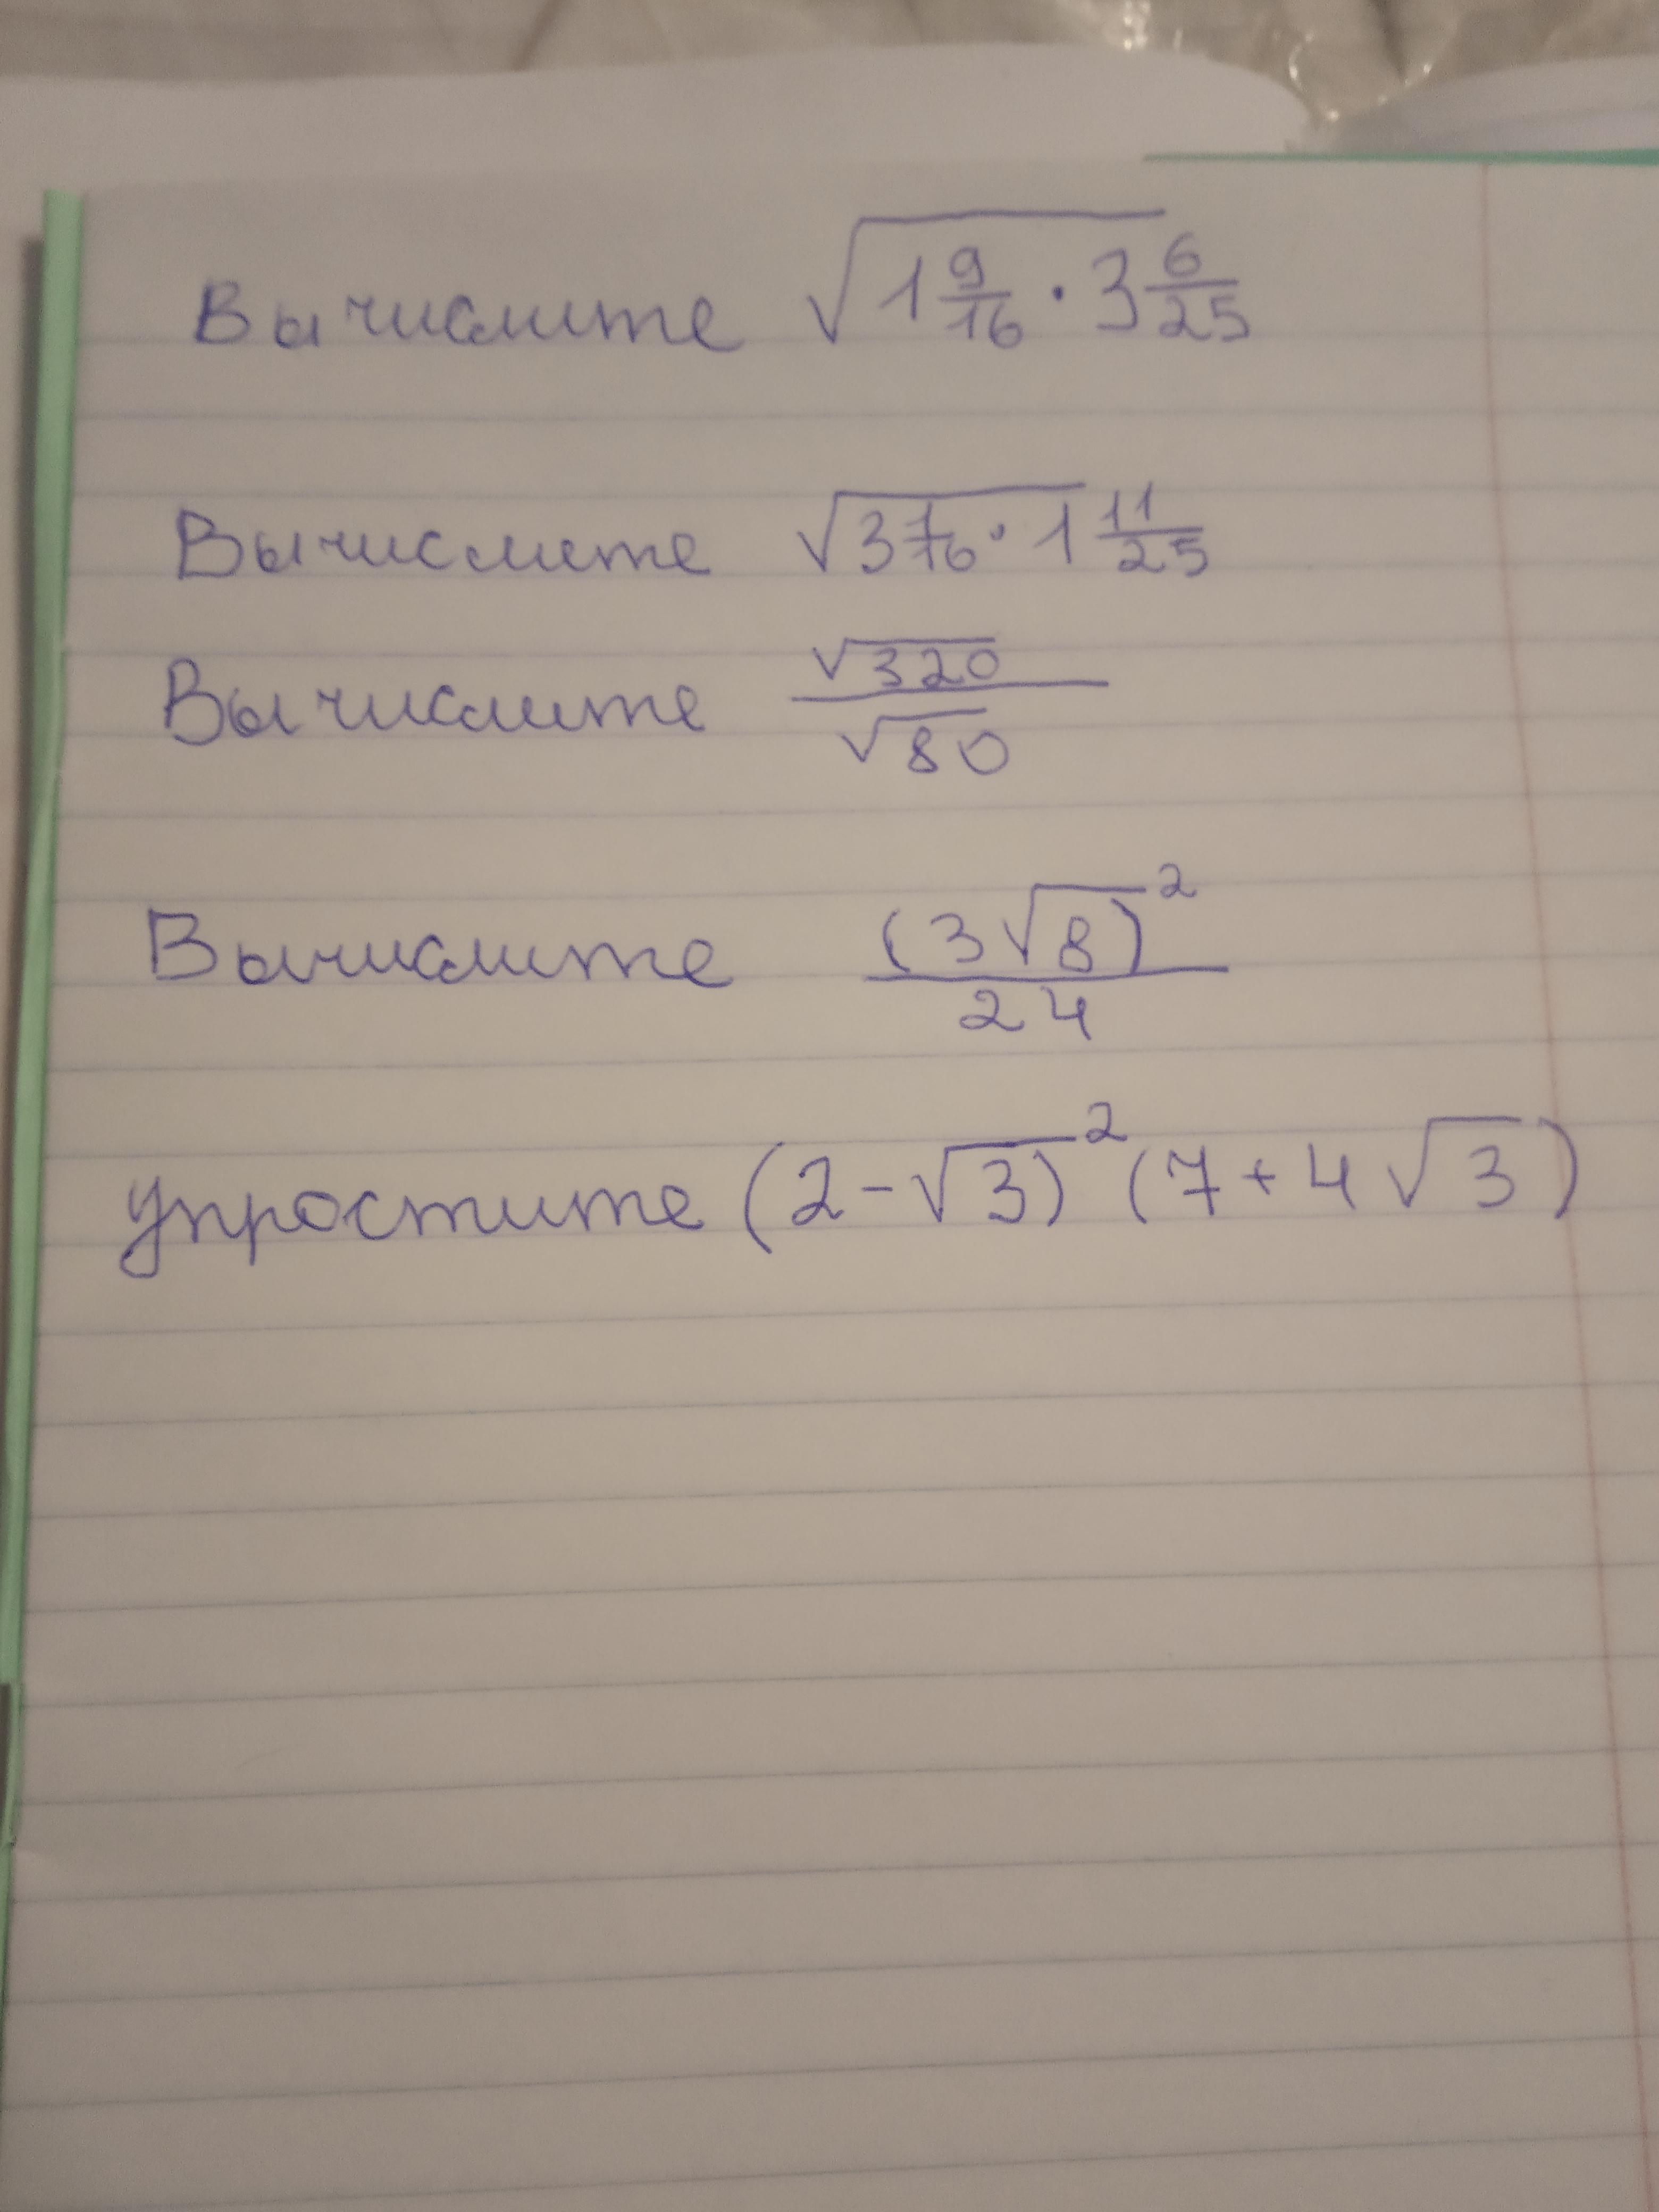 Вычислите √(1 9/16 · 3 6/25)
Вычислите √(376 · 1 11/25)
Вычислите √320/√80
Вычислите (3√8)²/24
упростите (2-√3)²(7+4√3)